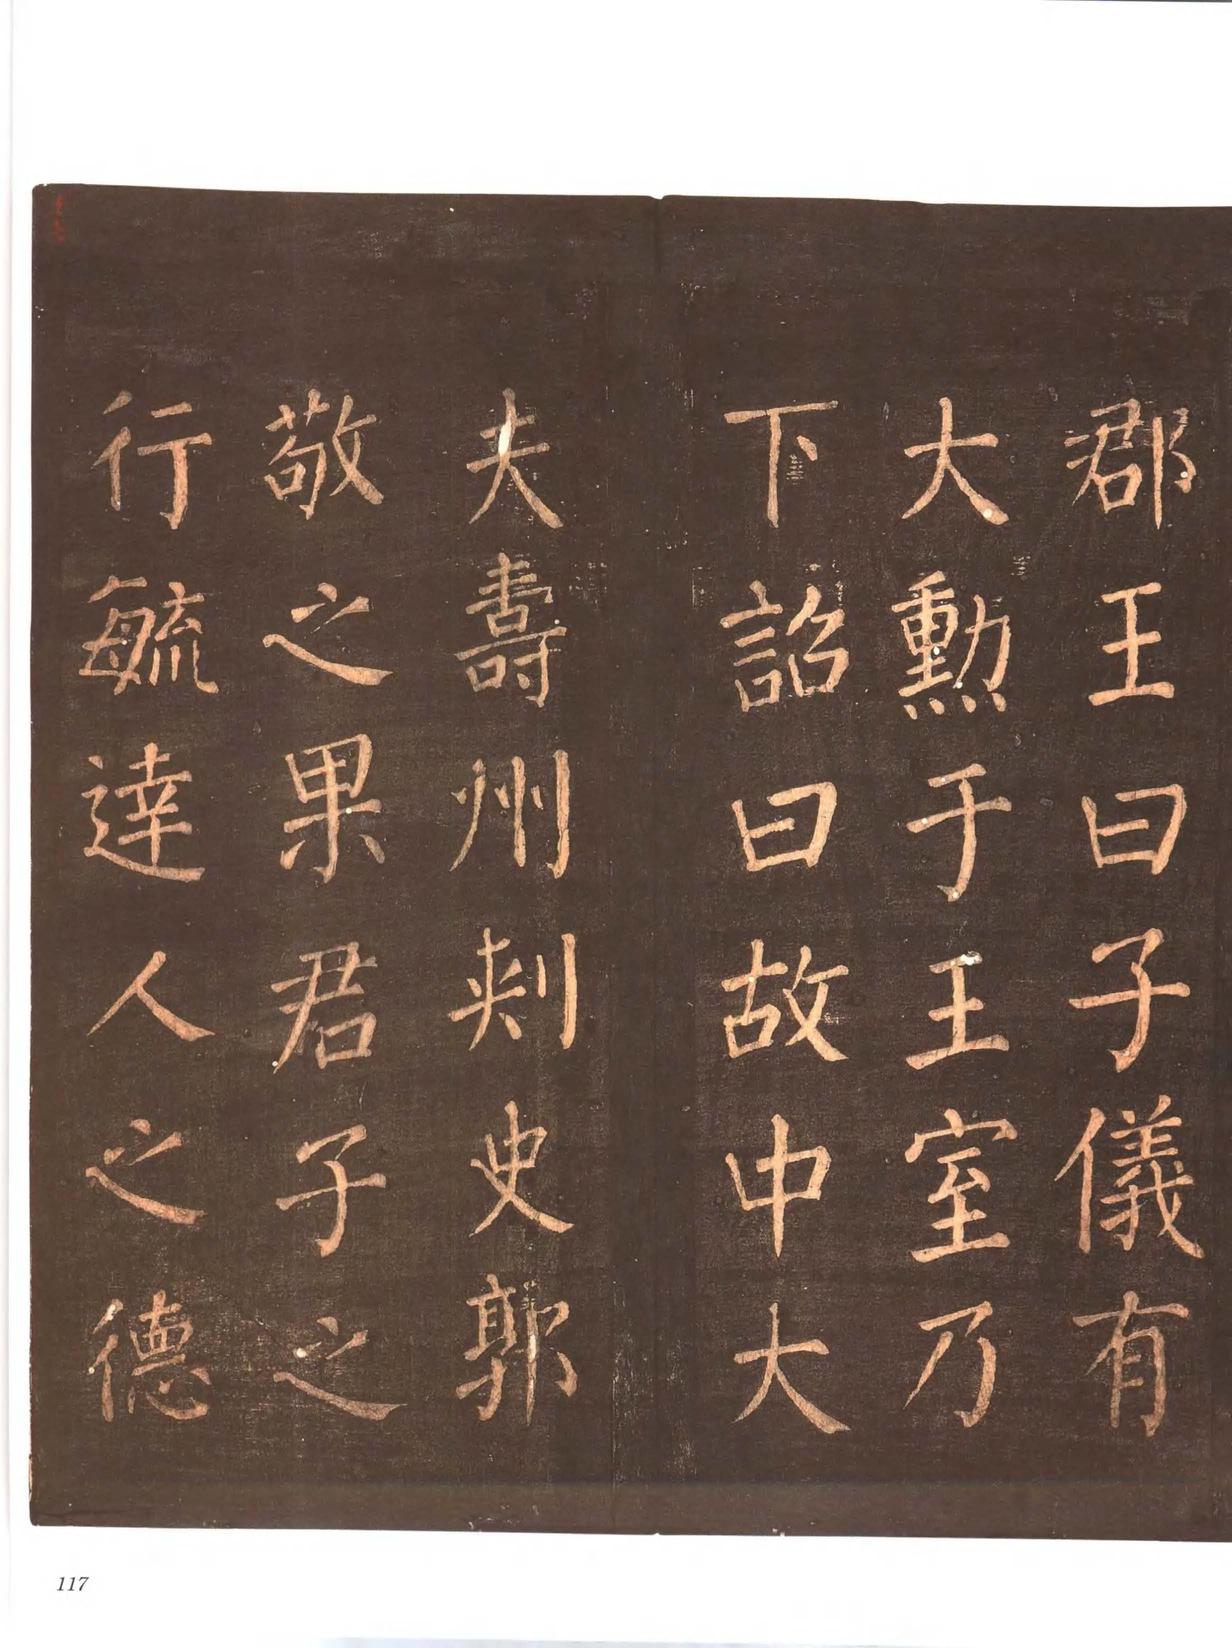 郡王曰子儀有
大勲于王室乃
下詔曰故中大
夫壽州刾史郭
敬之果君子之
行毓達人之德
117